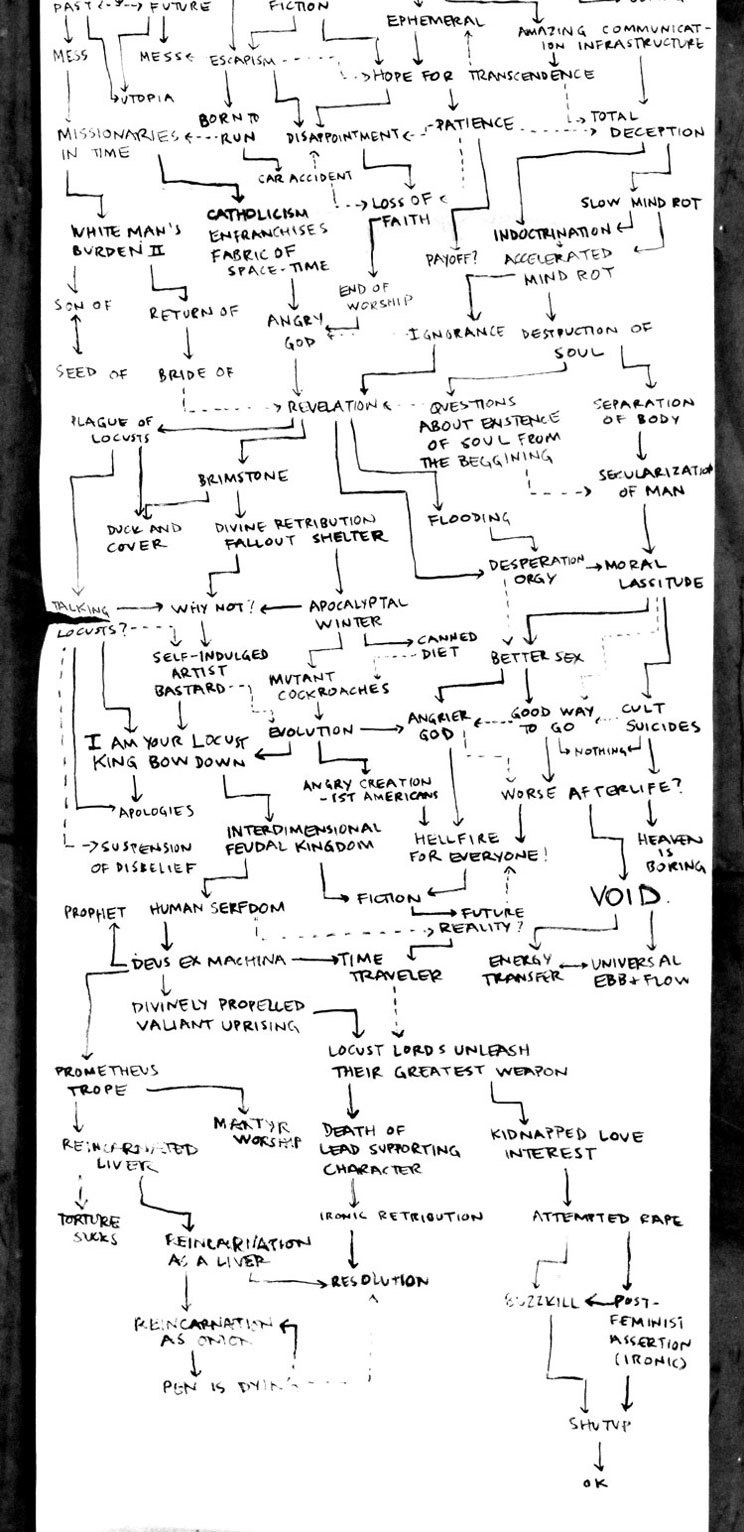 PAST
FUTURE
FICTION
EPHEMERAL
AMAZING COMMUNICAT-
ION INFRASTRUCTURE
MESS
MESS
ESCAPISM
HOPE FOR TRANSCENDENCE
UTOPIA
MISSIONARIES
IN TIME
BORN TO
RUN
DISAPPOINTMENT
PATIENCE
TOTAL
DECEPTION
CAR ACCIDENT
LOSS OF
FAITH
SLOW MIND ROT
WHITE MAN'S
BURDEN II
CATHOLICISM
ENFRANCHISES
FABRIC OF
SPACE-TIME
PAYOFF?
INDOCTRINATION
ACCELERATED
MIND ROT
SON OF
RETURN OF
ANGRY
GOD
END OF
WORSHIP
IGNORANCE
DESTRUCTION OF
SOUL
SEED OF
BRIDE OF
REVELATION
QUESTIONS
ABOUT EXISTENCE
OF SOUL FROM
THE BEGGINING
SEPARATION
OF BODY
PLAGUE OF
LOCUSTS
BRIMSTONE
SECULARIZATION
OF MAN
DUCK AND
COVER
DIVINE RETRIBUTION
FALLOUT SHELTER
FLOODING
DESPERATION
ORGY
MORAL
LASSITUDE
TALKING
LOCUSTS?
WHY NOT?
APOCALYPTAL
WINTER
CANNED
DIET
BETTER SEX
SELF-INDULGED
ARTIST
BASTARD
MUTANT
COCKROACHES
I AM YOUR LOCUST
KING BOW DOWN
EVOLUTION
ANGRIER
GOD
GOOD WAY
TO GO
CULT
SUICIDES
NOTHING
APOLOGIES
ANGRY CREATION
-IST AMERICANS
WORSE AFTERLIFE?
SUSPENSION
OF DISBELIEF
INTERDIMENSIONAL
FEUDAL KINGDOM
HELLFIRE
FOR EVERYONE!
HEAVEN
IS
BORING
PROPHET
HUMAN SERFDOM
FICTION
FUTURE
REALITY?
VOID.
DEUS EX MACHINA
TIME
TRAVELER
ENERGY
TRANSFER
UNIVERSAL
EBB + FLOW
DIVINELY PROPELLED
VALIANT UPRISING
LOCUST LORDS UNLEASH
THEIR GREATEST WEAPON
PROMETHEUS
TROPE
MARTYR
WORSHIP
DEATH OF
LEAD SUPPORTING
CHARACTER
KIDNAPPED LOVE
INTEREST
REINCARNATED
LIVER
TORTURE
SUCKS
REINCARNATION
AS A LIVER
IRONIC RETRIBUTION
ATTEMPTED RAPE
RESOLUTION
BUZZKILL
POST-
FEMINIST
ASSERTION
(IRONIC)
REINCARNATION
AS ONION
PEN IS DYING
SHUTUP
OK